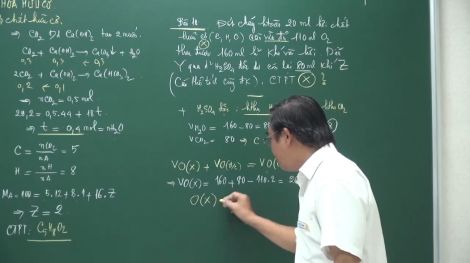 HÓA HỮU CƠ
chất hữu cơ.
⇒ CO₂ Dd Ca(OH)₂ tạo 2 muối.
CO₂ + Ca(OH)₂ → CaCO₃↓ + H₂O
0,3 0,3
CO₂ + Ca(OH)₂ → Ca(HCO₃)₂
0,2 ← 0,1
⇒ nCO₂ = 0,5 mol
29,2 = 0,5.44 + 18t
⇒ t = 0,4 mol = nH₂O
C = nCO₂/nA = 5
H = nH/nA = 8
= 100 = 5.12 + 8.1 + 16.Z
⇒ Z = 2
CTPT: C₅H₈O₂
Bài 10 Đốt cháy htoàn 20 ml hơi chất
hữu cơ (C, H, O) vừa đủ 110 ml O₂
(X)
thu được 160 ml hh Khí và hơi. Dẫn
Y qua dd H₂SO₄ đđ dư còn lại 80 ml khí Z
(Các thể tích cùng đk). CTPT (X) ?
+ H₂SO₄ đđ: CO₂
VH₂O = 160 - 80 = 80
VCO₂ = 80 ⇒ C
VO(X) + VO = VO(
⇒ VO(X) = 160 + 80 - 110.2 = 2
O(X)